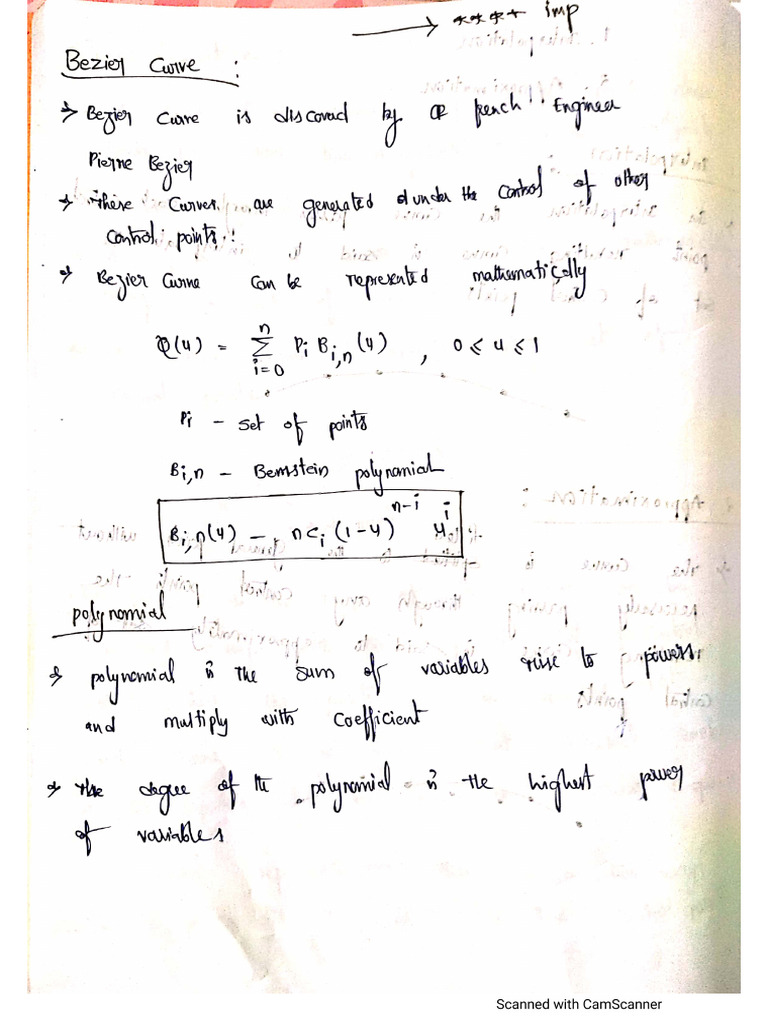 → **** imp
Bezier Curve :
→ Bezier Curve is discovered by a french Engineer
Pierre Bezier
→ There Curves are generated under the control of other
control points.
→ Bezier Curve can be represented mathematically
Q(u) = Σ_{i=0}^{n} Pi B_{i,n}(u) , 0 ≤ u ≤ 1
Pi - set of points
B_{i,n} - Bernstein polynomial
B_{i,n}(u) - nC_i (1-u)^{n-i} u^i
polynomial
→ polynomial is the sum of variables rise to powers
and multiply with coefficient
→ The degree of the polynomial is the highest power
of variables
Scanned with CamScanner